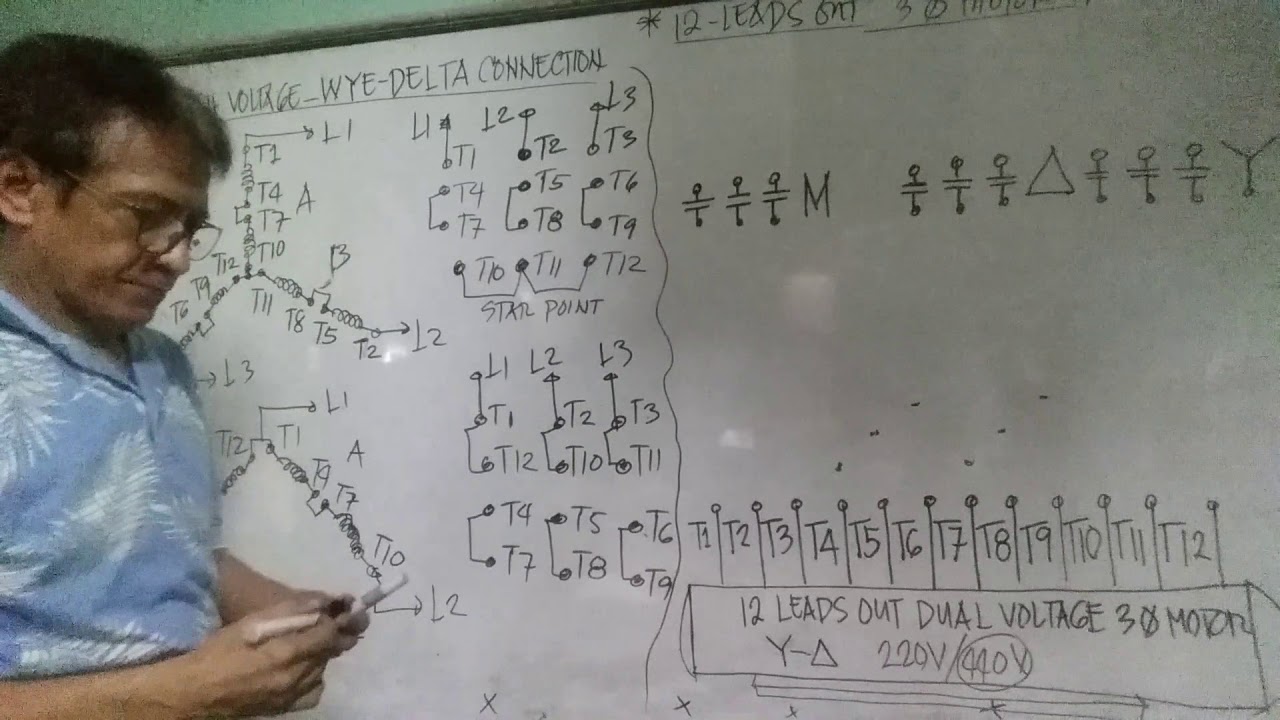 * 12-LEADS OUT 3Ø MOTOR
VOLTAGE-WYE-DELTA CONNECTION
L1
T1
T4
A
T7
T10
T12
T9
T6
B
T11
T8
T5
T2
L2
L3
L1 L2 L3
T1 T2 T3
T4 T5 T6
T7 T8 T9
T10 T11 T12
STAR POINT
L1
T12 T1
A
T4
T7
T10
L2
L1 L2 L3
T1 T2 T3
T12 T10 T11
T4 T5 T6
T7 T8 T9
M Δ Y
T1 T2 T3 T4 T5 T6 T7 T8 T9 T10 T11 T12
12 LEADS OUT DUAL VOLTAGE 3Ø MOTOR
Y-Δ 220V/440V